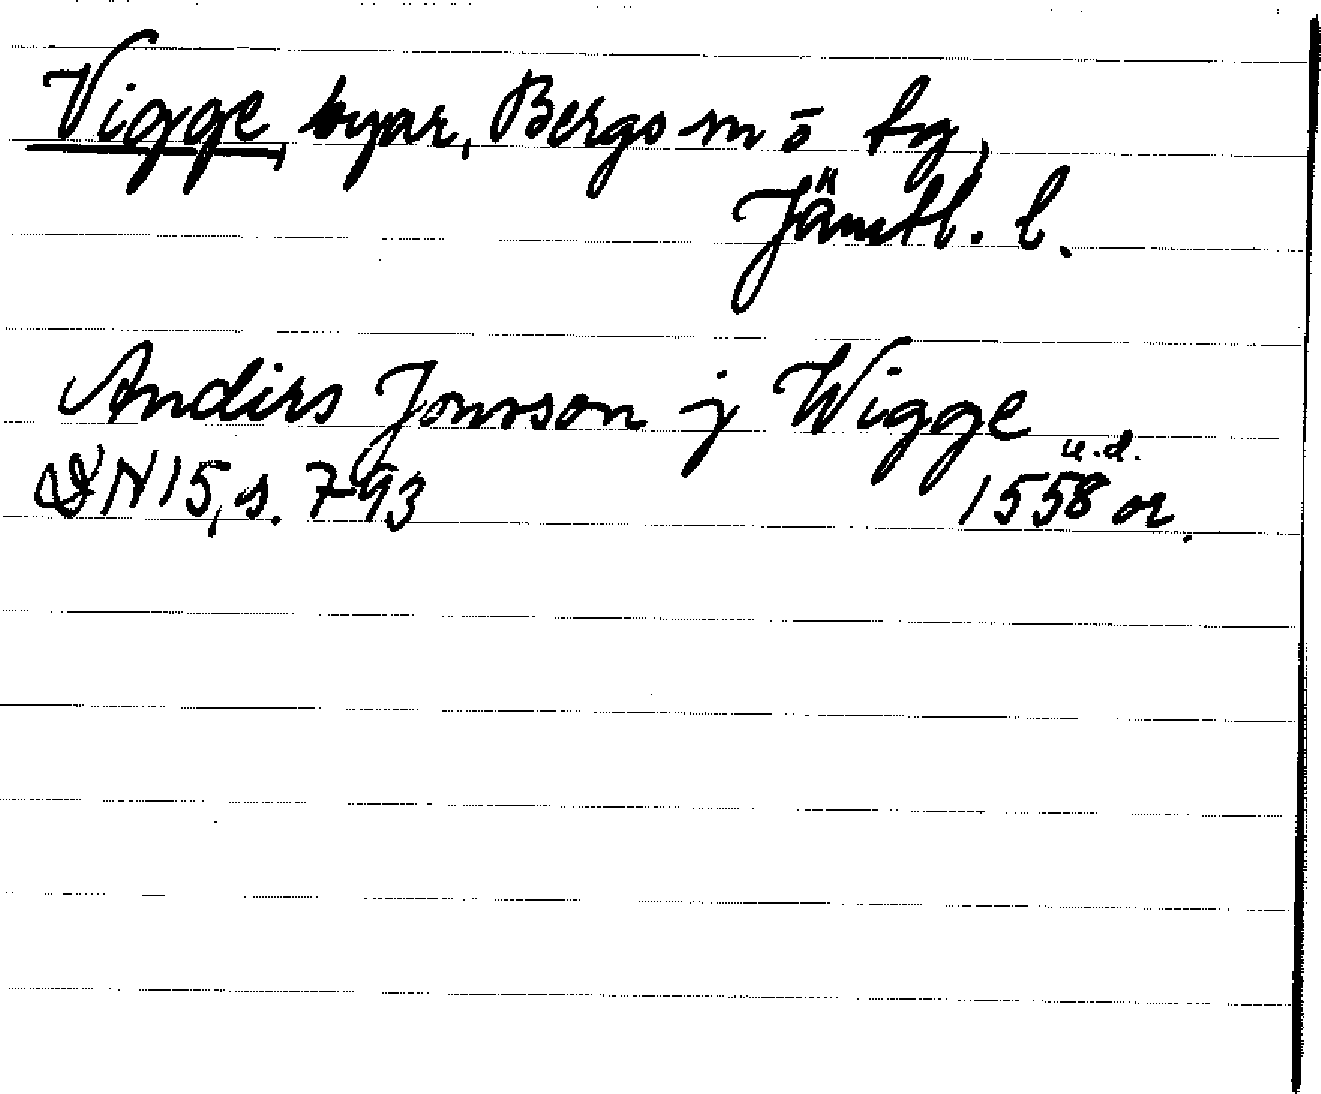 Vigge, byar, Bergs sn o tg,
Jämtl. l.
Anders Jonsson j Wigge
u.d.
DN 15, s. 793 1558 or.